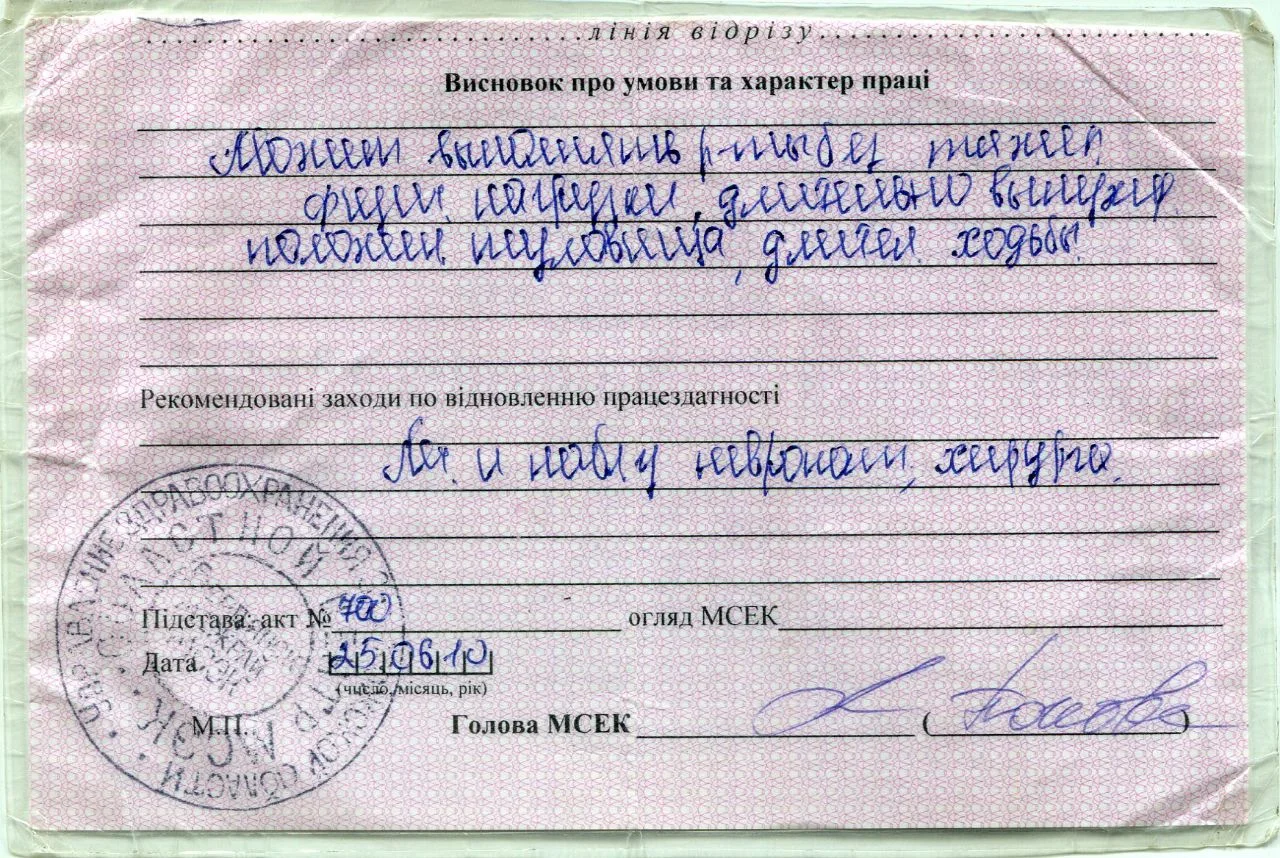 лінія відрізу
Висновок про умови та характер праці
Может выполнять р-ты без тяжел.
физич. нагрузки, длительно вынужд.
положен. туловища, длител. ходьбы.
Рекомендовані заходи по відновленню працездатності
и набл у невропат., хирурга.
Підстава: акт № 700 огляд МСЕК
Дата 25 06 10
(число, місяць, рік)
М.П. Голова МСЕК ( )
УПРАВЛЕНИЕ ЗДРАВООХРАНЕНИЯ ОБЛАСТИ
ОБЛАСТНОЙ ЦЕНТР МСЭК